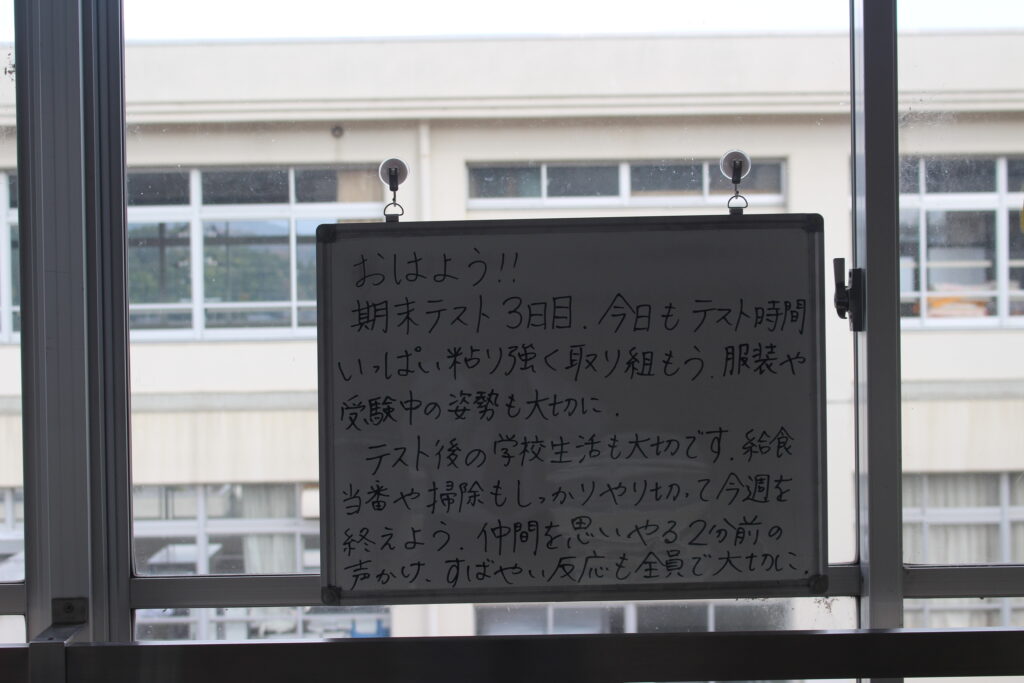 おはよう!!
期末テスト3日目.今日もテスト時間
いっぱい粘り強く取り組もう.服装や
受験中の姿勢も大切に.
テスト後の学校生活も大切です.給食
当番や掃除もしっかりやり切って今週を
終えよう.仲間を思いやる2分前の
声かけ、すばやい反応も全員で大切に.